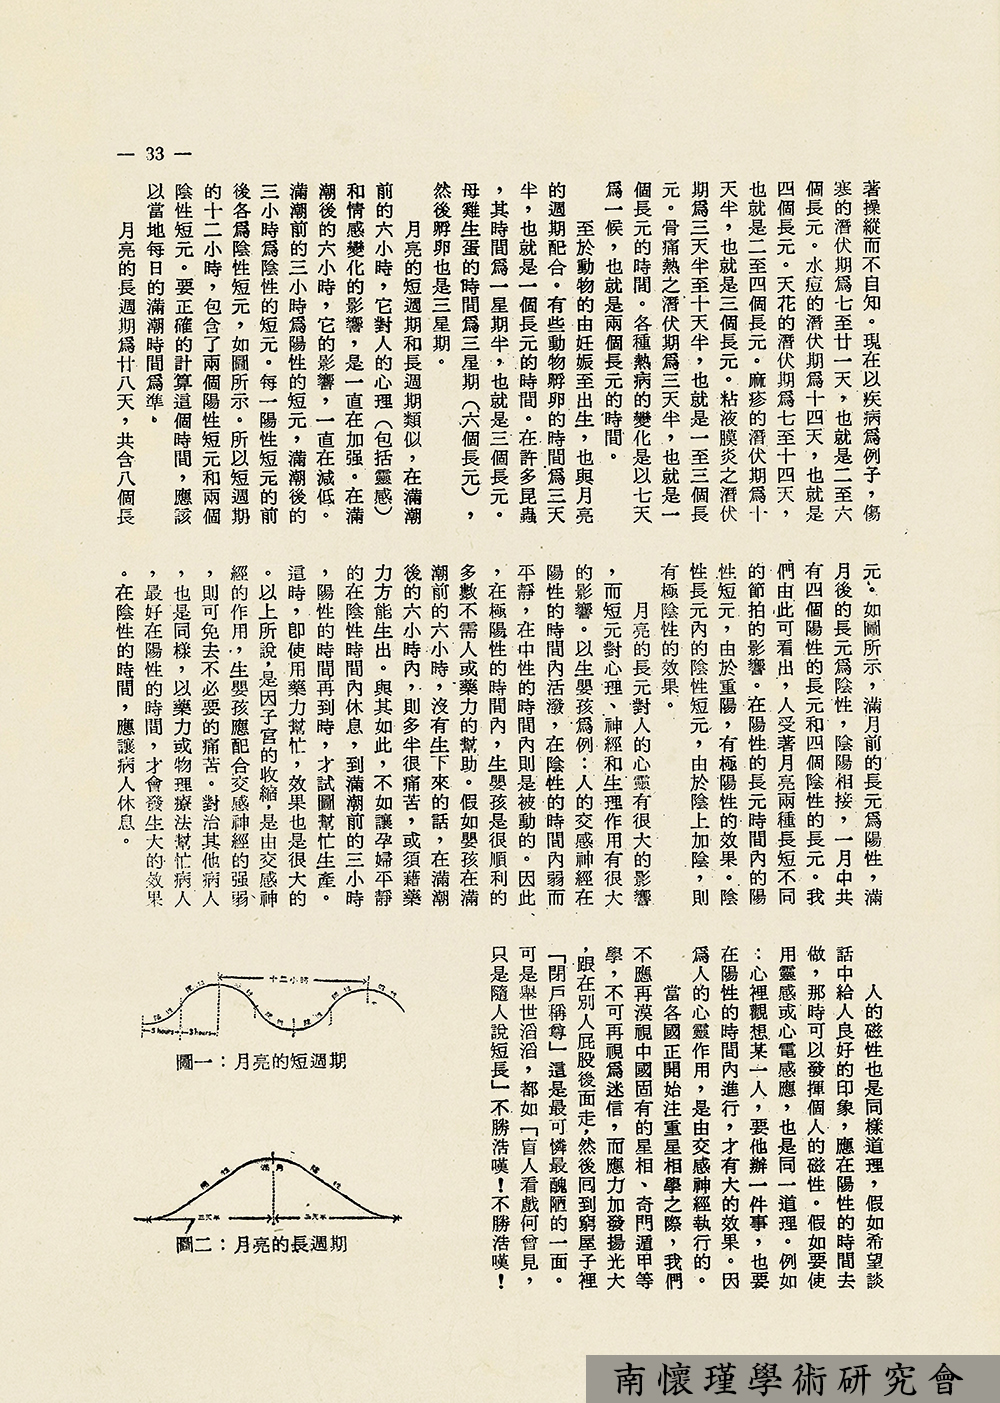 — 33 —
著操縱而不自知。現在以疾病爲例子，傷
寒的潛伏期爲七至廿一天，也就是二至六
個長元。水痘的潛伏期爲十四天，也就是
四個長元。天花的潛伏期爲七至十四天，
也就是二至四個長元。麻疹的潛伏期爲十
天半，也就是三個長元。粘液膜炎之潛伏
期爲三天半至十天半，也就是一至三個長
元。骨痛熱之潛伏期爲三天半，也就是一
個長元的時間。各種熱病的變化是以七天
爲一候，也就是兩個長元的時間。
至於動物的由妊娠至出生，也與月亮
的週期配合。有些動物孵卵的時間爲三天
半，也就是一個長元的時間。在許多昆蟲
，其時間爲一星期半，也就是三個長元。
母雞生蛋的時間爲三星期（六個長元），
然後孵卵也是三星期。
月亮的短週期和長週期類似，在滿潮
前的六小時，它對人的心理（包括靈感）
和情感變化的影響，是一直在加强。在滿
潮後的六小時，它的影響，一直在減低。
滿潮前的三小時爲陽性的短元，滿潮後的
三小時爲陰性的短元。每一陽性短元的前
後各爲陰性短元，如圖所示。所以短週期
的十二小時，包含了兩個陽性短元和兩個
陰性短元。要正確的計算這個時間，應該
以當地每日的滿潮時間爲準。
月亮的長週期爲廿八天，共含八個長
元。如圖所示，滿月前的長元爲陽性，滿
月後的長元爲陰性，陰陽相接，一月中共
有四個陽性的長元和四個陰性的長元。我
們由此可看出，人受著月亮兩種長短不同
的節拍的影響。在陽性的長元時間內的陽
性短元，由於重陽，有極陽性的效果。陰
性長元內的陰性短元，由於陰上加陰，則
有極陰性的效果。
月亮的長元對人的心靈有很大的影響
，而短元對心理、神經和生理作用有很大
的影響。以生嬰孩爲例：人的交感神經在
陽性的時間內活潑，在陰性的時間內弱而
平靜，在中性的時間內則是被動的。因此
，在極陽性的時間內，生嬰孩是很順利的
多數不需人或藥力的幫助。假如嬰孩在滿
潮前的六小時，沒有生下來的話，在滿潮
後的六小時內，則多半很痛苦，或須藉藥
力方能生出。與其如此，不如讓孕婦平靜
的在陰性時間內休息，到滿潮前的三小時
，陽性的時間再到時，才試圖幫忙生產。
這時，卽使用藥力幫忙，效果也是很大的
。以上所說，是因子宮的收縮，是由交感神
經的作用，生嬰孩應配合交感神經的强弱
，則可免去不必要的痛苦。對治其他病人
，也是同樣，以藥力或物理療法幫忙病人
，最好在陽性的時間，才會發生大的效果
。在陰性的時間，應讓病人休息。
人的磁性也是同樣道理，假如希望談
話中給人良好的印象，應在陽性的時間去
做，那時可以發揮個人的磁性。假如要使
用靈感或心電感應，也是同一道理。例如
：心裡觀想某一人，要他辦一件事，也要
在陽性的時間內進行，才有大的效果。因
爲人的心靈作用，是由交感神經執行的。
當各國正開始注重星相學之際，我們
不應再漠視中國固有的星相、奇門遁甲等
學，不可再視爲迷信，而應力加發揚光大
，跟在別人屁股後面走，然後回到窮屋子裡
「閉戶稱尊」這是最可憐最醜陋的一面。
可是舉世滔滔，都如「盲人看戲何曾見，
只是隨人說短長」不勝浩嘆！不勝浩嘆！
十二小時
3 hours
3 hours
圖一：月亮的短週期
滿月
三天半
三天半
圖二：月亮的長週期
南懷瑾學術研究會